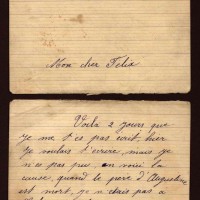 Mon cher Felix
Voilà 2 jours que
je me t'ce pas ecrit hier
je voulais t'ecrire, mais je
n'ce pas peu, en voici la
cause, quand le pere d'Augustine
est mort, je n'étais pas a